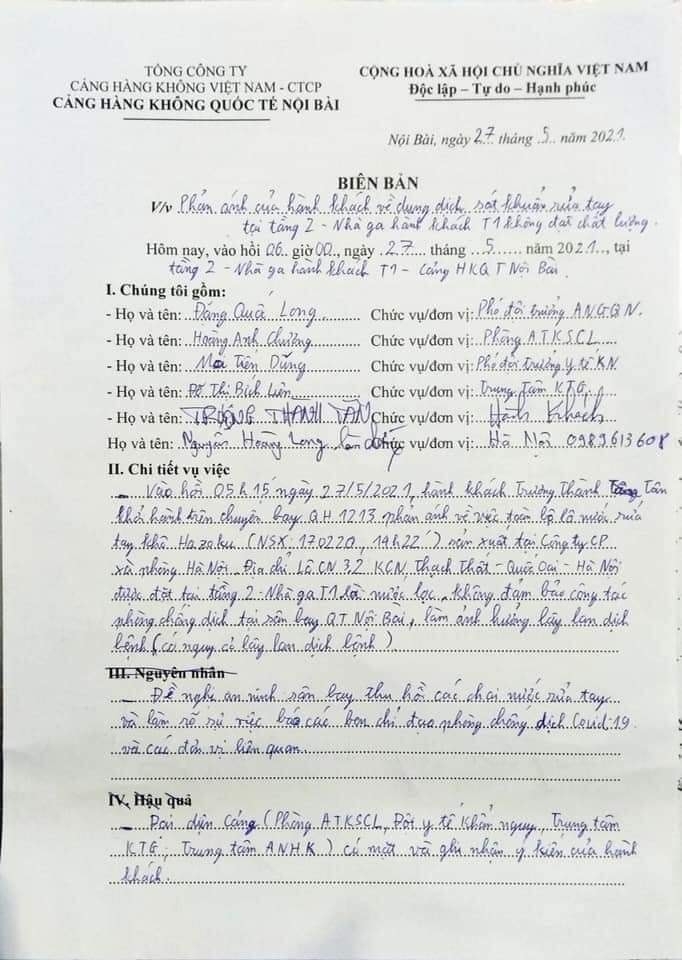 TỔNG CÔNG TY
CẢNG HÀNG KHÔNG VIỆT NAM - CTCP
CẢNG HÀNG KHÔNG QUỐC TẾ NỘI BÀI
CỘNG HOÀ XÃ HỘI CHỦ NGHĨA VIỆT NAM
Độc lập – Tự do – Hạnh phúc
Nội Bài, ngày 27 tháng 5 năm 2021.
BIÊN BẢN
V/v Phản ánh của hành khách về dung dịch sát khuẩn rửa tay
tại tầng 2 - Nhà ga hành khách T1 không đạt chất lượng.
Hôm nay, vào hồi 06 giờ 00, ngày 27 tháng 5 năm 2021, tại
tầng 2 - Nhà ga hành khách T1 - Cảng HKQT Nội Bài.
I. Chúng tôi gồm:
- Họ và tên: Đặng Quốc Long Chức vụ/đơn vị: Phó đội trưởng
- Họ và tên: Hoàng Anh Chức vụ/đơn vị: Phòng ATKSCL
- Họ và tên: Tiến Dũng Chức vụ/đơn vị: Phó đội trưởng y tế KN
- Họ và tên: Đỗ Thị Bích Liên Chức vụ/đơn vị: Trung Tâm KTG
- Họ và tên: TRƯƠNG THANH TÂN Chức vụ/đơn vị: Hành Khách
Họ và tên: Nguyễn Hoàng Long Chức vụ/đơn vị: Hà Nội 0989613608
II. Chi tiết vụ việc
- Vào hồi 05h15 ngày 27/5/2021, hành khách Trương Thành Tân
khởi hành trên chuyến bay QH1213 phản ánh về việc toàn bộ lô nước rửa
tay khô Hazoku (NSX: 170220, 14h22') sản xuất tại Công ty CP
xà phòng Hà Nội. Địa chỉ Lô CN 3.2 KCN Thạch Thất - Quốc Oai - Hà Nội
được đặt tại tầng 2 - Nhà ga T1 là nước lọc, không đảm bảo công tác
phòng chống dịch tại sân bay QT Nội Bài, làm ảnh hưởng lây lan dịch
bệnh (có nguy cơ lây lan dịch bệnh)
III. Nguyên nhân
- Đề nghị an ninh sân bay thu hồi các chai nước rửa tay
và làm rõ sự việc báo các ban chỉ đạo phòng chống dịch Covid-19
và các đơn vị liên quan.
IV. Hậu quả
- Đại diện Cảng (Phòng ATKSCL, Đội y tế khẩn nguy, Trung tâm
KTG, Trung tâm ANHK) có mặt và ghi nhận ý kiến của hành
khách.